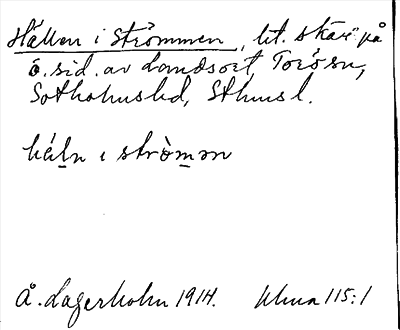 Hällen i Strömmen, lit. skär på
ö. sid. av Landsort, Torö sn,
Sotholms hd, Sthms l.
hä́ln i strò̀mən
Å. Lagerholm 1914. Uhma 115:1